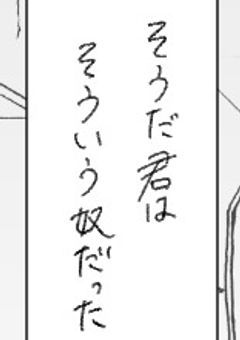 そうだ君は
そういう奴だった